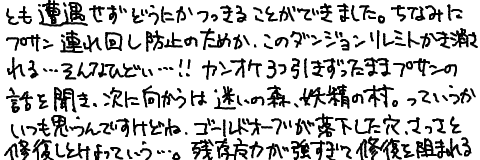 とも遭遇せずどうにかつっきることができました。ちなみに
プサン連れ回し防止のためか、このダンジョンリレミトかき消さ
れる…そんなひどい…!! カンオケ3つ引きずったままプサンの
話を聞き、次に向かうは迷いの森、妖精の村。っていうか
いつも思うんですけどね、ゴールドオーブが落下した穴、さっさと
修復しとけよっていう…。残存魔力が強すぎて修復を阻まれる